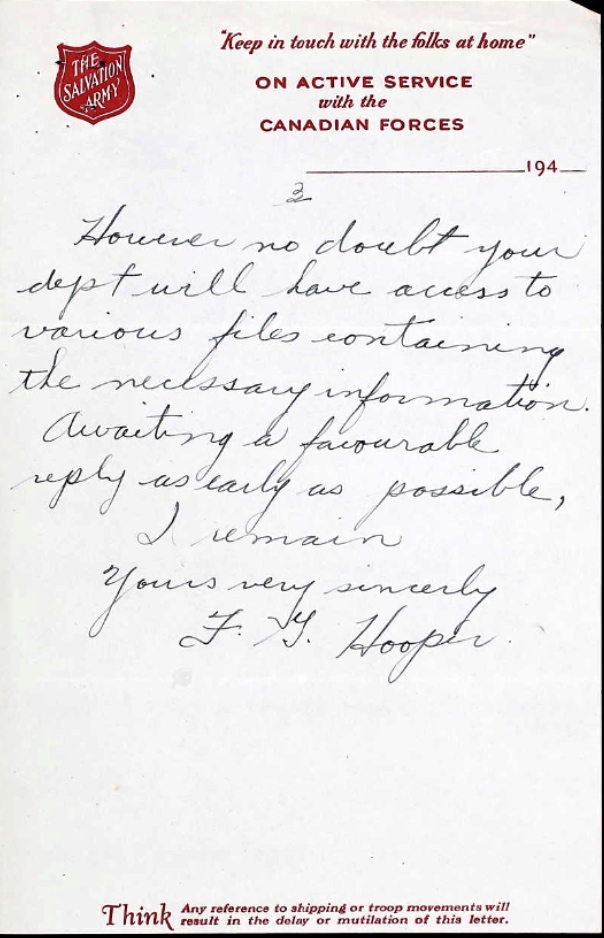 "Keep in touch with the folks at home"
THE
SALVATION
ARMY
ON ACTIVE SERVICE
with the
CANADIAN FORCES
194
3
However no doubt your
dept will have access to
various files containing
the necessary information.
Awaiting a favourable
reply as early as possible,
I remain
Yours very sincerly
F. G. Hooper.
Think Any reference to shipping or troop movements will
result in the delay or mutilation of this letter.